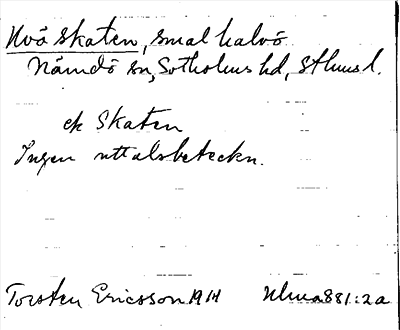 Kvö Skaten, smal halvö
Nämdö sn, Sotholms hd, Sthms l.
ek Skaten
Ingen uttalsbeteckn.
Torsten Ericsson 1914 Ulma 881:2a